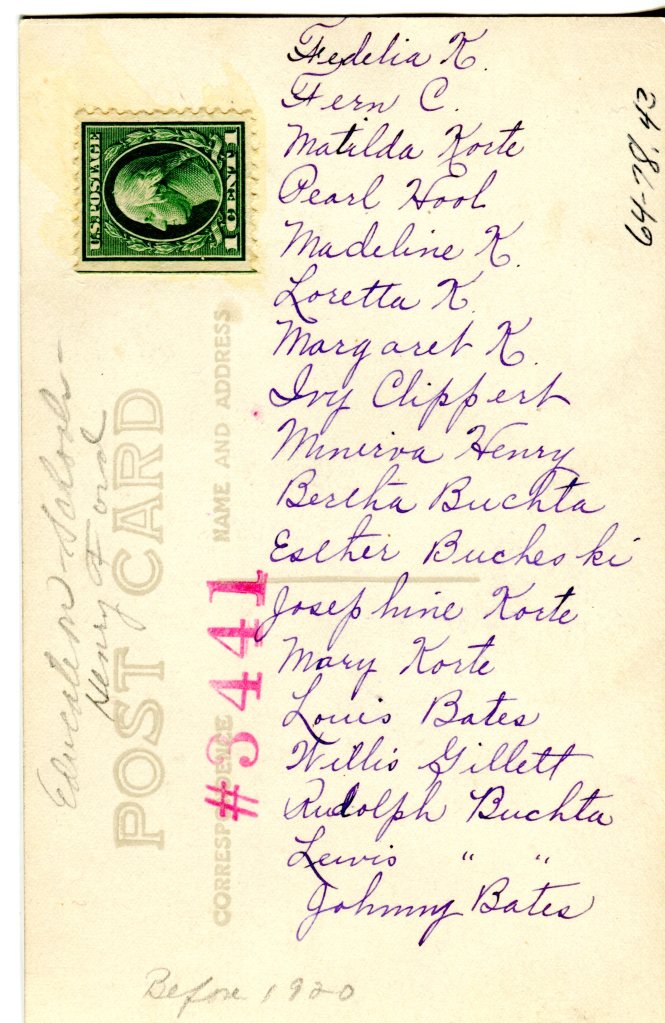 Fedelia K.
Fern C.
Matilda Korte
Pearl Hool
Madeline K.
Loretta K.
Margaret K.
Ivy Clippert
Minerva Henry
Bertha Buchta
Esther Bucheski
Josephine Korte
Mary Korte
Louis Bates
Willis Gillett
Rudolph Buchta
Lewis " "
Johnny Bates
64-78.43
U.S. POSTAGE
1 CENT 1
Education-Schools-
Henry Ford
POST CARD
CORRESPONDENCE
NAME AND ADDRESS
#3441
Before 1920